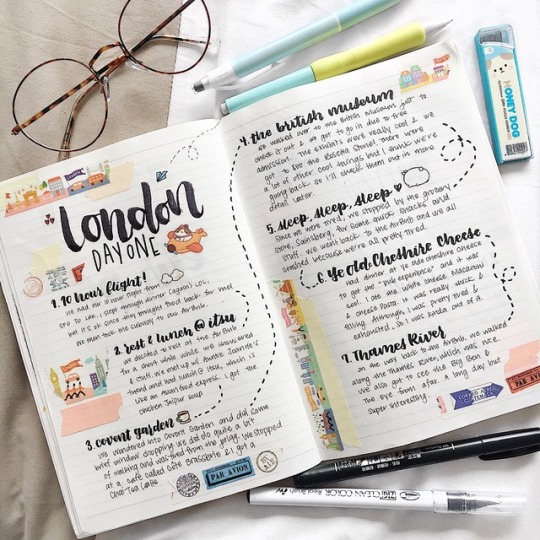 London
DAY ONE
1. 10 hour flight!
We had our 10 hour flight from (again) LAX,
SFO to LAX. I slept through dinner (again) LOL,
but it's ok since any midnight food
We then took the subway to our Airbnb.
2. rest & lunch @ itsu
We decided to rest at the Airbnb
for a short while while we showered
& stuff. We met up w/ Auntie
friend and had lunch @ itsu, which is
like an Asian food express. I got the
chicken jaipur soup
3. covent garden
We wandered into Covent Garden and did some
brief window shopping. We did do quite a bit
of walking and was tired from the jetlag. We stopped
at a cafe called Cote Brasserie & I got a
Chai Tea Latte
PAR AVION
4. the british museum
We walked over to the British Museum just to
check it out & we got to go in due to free
admission. The exhibits were really cool & we
got to see the Rosetta Stone! There were
a lot of other cool things but I think we're
going back, so I'll check them out in more
detail later.
5. sleep, sleep, sleep
Since we were tired, we stopped by the grocery
store, Sainsbury, for some quick snacks and
stuff. We went back to the Airbnb and we all
crashed because we're all pretty tired.
6. Ye old Cheshire Cheese
Had dinner at Ye olde cheshire cheese
to get the "pub experience" and it was
cool. I ate the whole cheese macaroni
& cheese pasta. It was really thick &
filling. Although, I was pretty tired &
exhausted, so I was kinda out of it.
7. Thames River
On the way back to the Airbnb, we walked
along the Thames River, which was nice.
We also got to see the Big Ben &
The Eye from afar. A long day but
super interesting.
PAR AVION
HONEY DOG
CLEAN COLOR
Real Brush